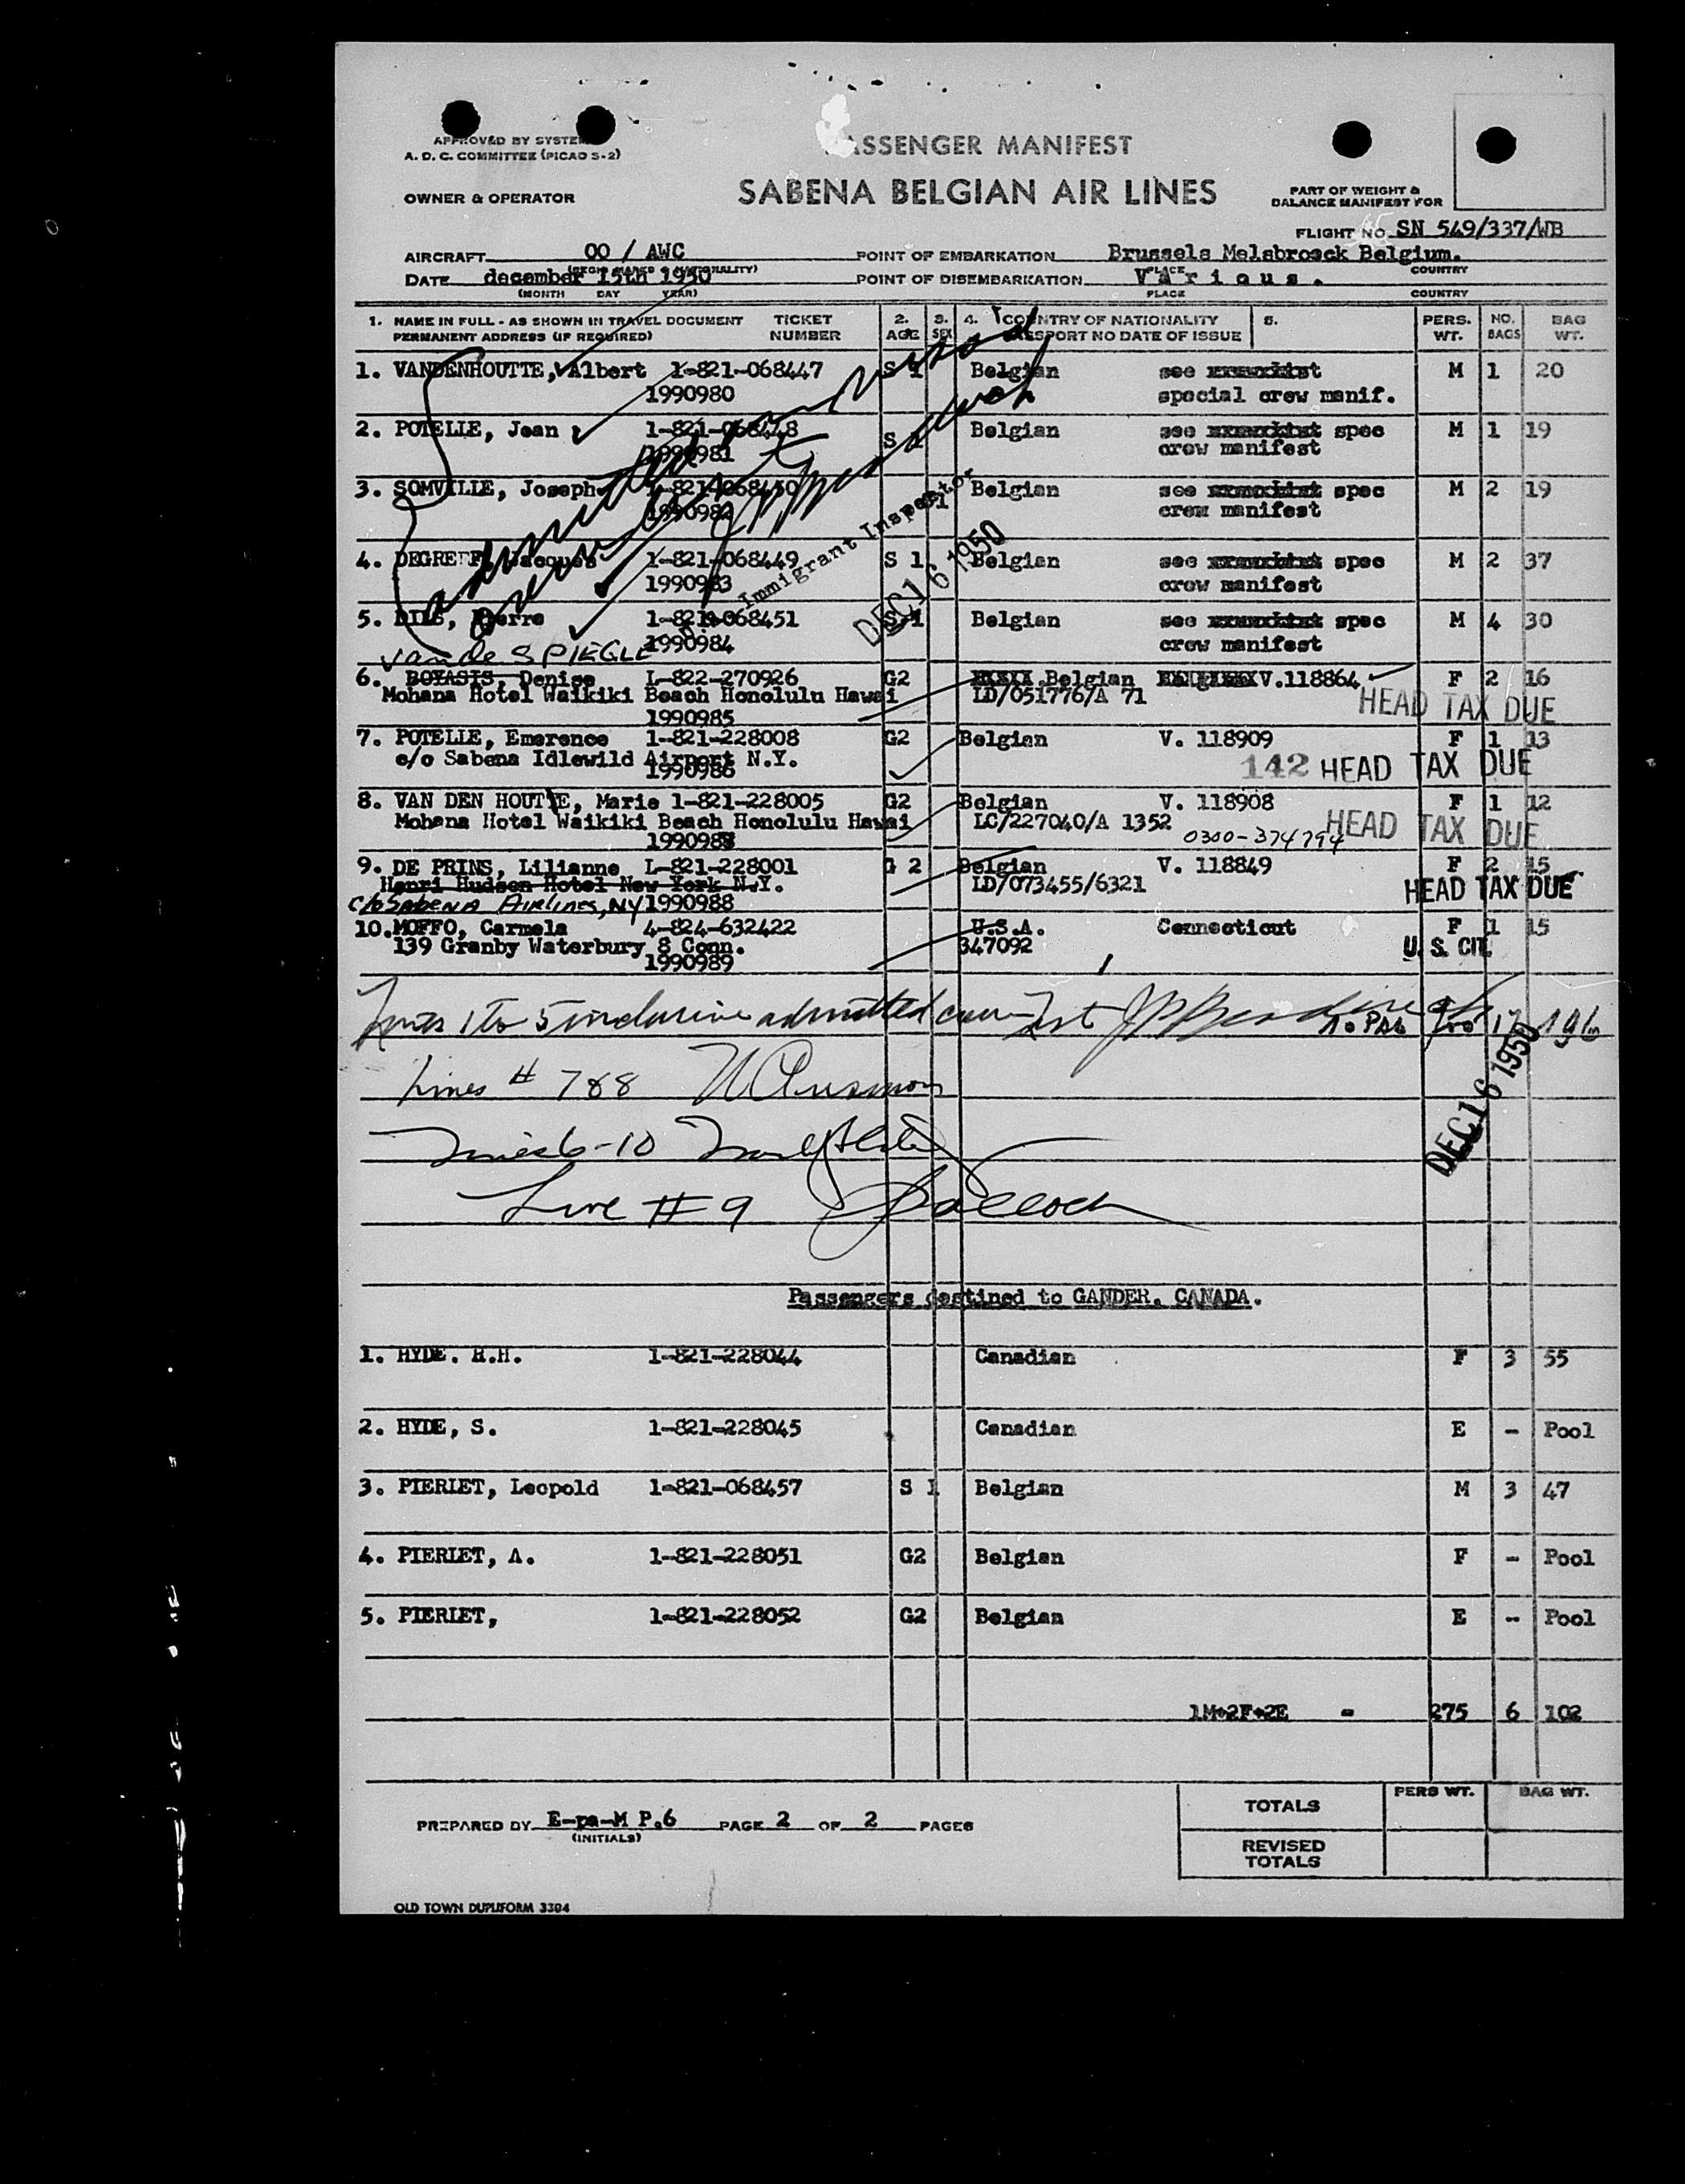 APPROVED BY SYSTEM
A. D. C. COMMITTEE (PICAO S-2)
PASSENGER MANIFEST
OWNER & OPERATOR
SABENA BELGIAN AIR LINES
PART OF WEIGHT &
BALANCE MANIFEST FOR
FLIGHT NO. SN 549/337/WB
AIRCRAFT OO / AWC
POINT OF EMBARKATION Brussels Melsbroeck Belgium.
DATE december 15th 1950
PLACE COUNTRY
POINT OF DISEMBARKATION VArious.
(MONTH DAY YEAR)
PLACE COUNTRY
1. NAME IN FULL - AS SHOWN IN TRAVEL DOCUMENT TICKET 2. 3. 4. COUNTRY OF NATIONALITY 5. PERS. NO. BAG
PERMANENT ADDRESS (IF REQUIRED) NUMBER AGE SEX PASSPORT NO DATE OF ISSUE WT. BAGS WT.
1. VANDENHOUTTE, Albert 1-821-068447 S 1 Belgian see M 1 20
1990980 special crew manif.
2. POTELLE, Jean 1-821-068448 S 1 Belgian see spec M 1 19
1990981 crew manifest
3. SOMVILLE, Joseph 1-821-068450 S 1 Belgian see spec M 2 19
1990982 crew manifest
4. DEGREEF, Jacques 1-821-068449 S 1 Belgian see spec M 2 37
1990983 crew manifest
5. DILS, Pierre 1-821-068451 S 1 Belgian see spec M 4 30
1990984 crew manifest
admitted
Immigrant Inspector
DEC 16 1950
van de SPIEGLE
6. BOYASIS, Denise 1-822-270926 G2 Belgian V.118864 F 2 16
Mohana Hotel Waikiki Beach Honolulu Hawai LD/051776/A 71 HEAD TAX DUE
1990985
7. POTELLE, Emerence 1-821-228008 G2 Belgian V. 118909 F 1 13
c/o Sabena Idlewild Airport N.Y. 142 HEAD TAX DUE
1990986
8. VAN DEN HOUTTE, Marie 1-821-228005 G2 Belgian V. 118908 F 1 12
Mohana Hotel Waikiki Beach Honolulu Hawai LC/227040/A 1352 0300-374794 HEAD TAX DUE
1990987
9. DE PRINS, Lilianne L-821-228001 G 2 Belgian V. 118849 F 2 15
Henri Hudson Hotel New York N.Y. LD/073455/6321 HEAD TAX DUE
c/o SABENA AIRLINES, NY 1990988
10. MOFFO, Carmela 4-824-632422 U.S.A. Connecticut F 1 15
139 Granby Waterbury 8 Conn. 347092 U. S. CIT.
1990989
Lines 1 to 5 inclusive admitted crew list
10 PAS 17 196
Lines # 7&8
DEC 16 1950
Lines 6-10
Line # 9
Passengers destined to GANDER. CANADA.
1. HYDE. R.H. 1-821-228044 Canadian F 3 55
2. HYDE, S. 1-821-228045 Canadian E - Pool
3. PIERLET, Leopold 1-821-068457 S 1 Belgian M 3 47
4. PIERLET, A. 1-821-228051 G2 Belgian F - Pool
5. PIERLET, 1-821-228052 G2 Belgian E - Pool
1M+2F+2E = 275 6 102
PERS WT. BAG WT.
TOTALS
PREPARED BY E-pa-M P.6 PAGE 2 OF 2 PAGES
(INITIALS)
REVISED
TOTALS
OLD TOWN DUPLIFORM 3304